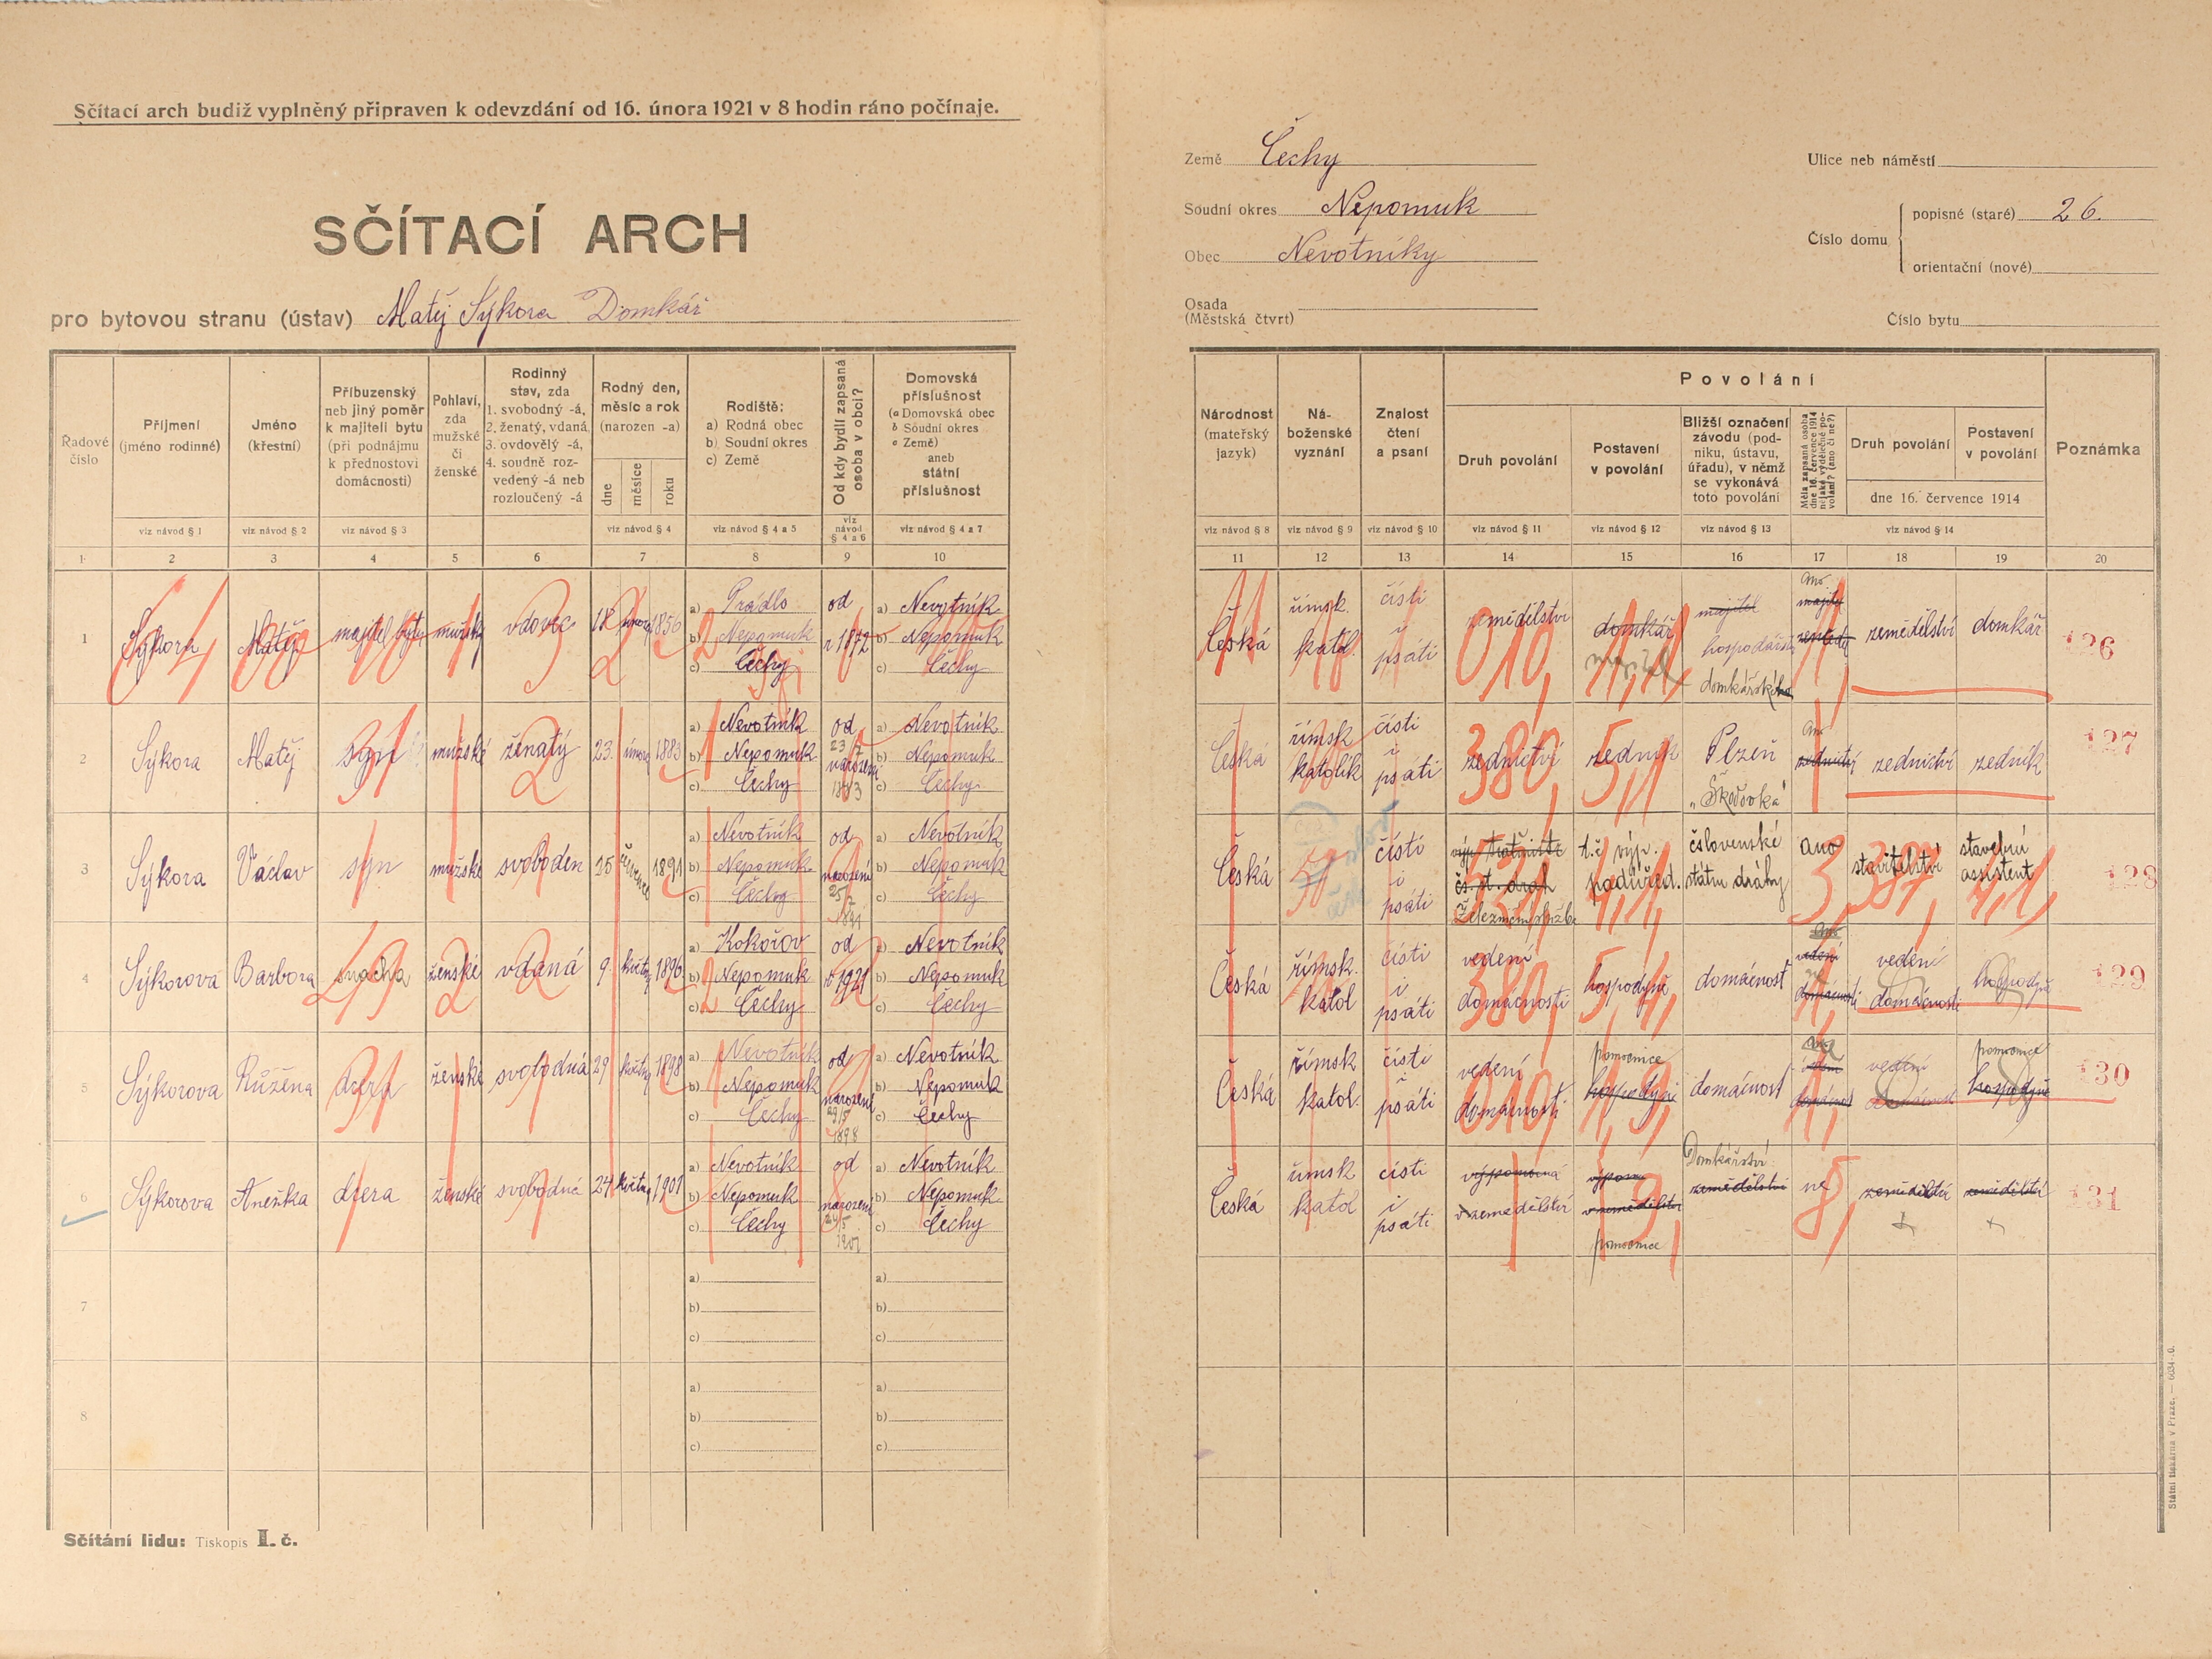 Sčítací arch budiž vyplněný připraven k odevzdání od 16. února 1921 v 8 hodin ráno počínaje.
SČÍTACÍ ARCH
pro bytovou stranu (ústav) Matěj Sýkora Domkář
Země Čechy
Soudní okres Nepomuk
Obec Nevotníky
Osada
(Městská čtvrt)
Ulice neb náměstí
Číslo domu
popisné (staré) 26.
orientační (nové)
Číslo bytu
Řadové číslo
Příjmení (jméno rodinné)
Jméno (křestní)
Příbuzenský neb jiný poměr k majiteli bytu (při podnájmu k přednostovi domácnosti)
Pohlaví, zda mužské či ženské
Rodinný stav, zda 1. svobodný -á, 2. ženatý, vdaná, 3. ovdovělý -á, 4. soudně rozvedený -á neb rozloučený -á
Rodný den, měsíc a rok (narozen -a)
dne měsíce roku
Rodiště: a) Rodná obec b) Soudní okres c) Země
Od kdy bydlí zapsaná osoba v obci?
Domovská příslušnost (a Domovská obec b Soudní okres c Země) aneb státní příslušnost
Národnost (mateřský jazyk)
Náboženské vyznání
Znalost čtení a psaní
Povolání
Druh povolání
Postavení v povolání
Bližší označení závodu (podniku, ústavu, úřadu), v němž se vykonává toto povolání
Měla zapsaná osoba dne 16. července 1914 nějaké výdělečné povolání? (ano či ne?)
Druh povolání
Postavení v povolání
dne 16. července 1914
Poznámka
viz návod § 1 viz návod § 2 viz návod § 3 viz návod § 4 viz návod § 4 a 5 viz návod § 4 a 6 viz návod § 4 a 7
viz návod § 8 viz návod § 9 viz návod § 10 viz návod § 11 viz návod § 12 viz návod § 13 viz návod § 14
1 2 3 4 5 6 7 8 9 10 11 12 13 14 15 16 17 18 19 20
1 Sýkora Matěj majitel bytu mužský vdovec 18 února 1856 a) Prádlo b) Nepomuk c) Čechy od r 1872 a) Nevotník b) Nepomuk c) Čechy
Česká římsk. katol. čísti i psáti zemědělství domkář majitel majitel hospodářství domkářského ano zemědělství domkář 126
2 Sýkora Matěj syn mužské ženatý 23. února 1883 a) Nevotník b) Nepomuk c) Čechy od narození 23/2 1883 a) Nevotník b) Nepomuk c) Čechy
Česká římsk katolík čísti i psáti 380, zednictví 5,1 zedník Plzeň „Škodovka" ano zednictví zednictví zedník 127
3 Sýkora Václav syn mužské svoboden 25 července 1891 a) Nevotník b) Nepomuk c) Čechy od narození 25/7 1891 a) Nevotník b) Nepomuk c) Čechy
Česká čísti i psáti čs. st. drah t.č. výp. podúřed. čslovenské státní dráhy ano 3 stavitelství 387 stavební assistent 4,1, 128
4 Sýkorová Barbora snacha ženské vdaná 9. květn 1896 a) Kokořov b) Nepomuk c) Čechy od r 1921 a) Nevotník b) Nepomuk c) Čechy
Česká římsk. katol čísti i psáti vedení domácnosti 380, hospodyně domácnost vedení domácnosti vedení domácnosti hospodyně 129
5 Sýkorova Růžena dcera ženské svobodná 29 květn 1898 a) Nevotník b) Nepomuk c) Čechy od narození 29/5 1898 a) Nevotník b) Nepomuk c) Čechy
Česká římsk katol. čísti i psáti vedení domácnosti 010, pomocnice hospodyně 1,9, domácnost vedení pomocnice hospodyně 130
6 Sýkorova Anežka dcera ženské svobodná 24 květn 1901 a) Nevotník b) Nepomuk c) Čechy od narození 24/5 1901 a) Nevotník b) Nepomuk c) Čechy
Česká římsk katol čísti i psáti výpomocná v zemědělství pomocnice Domkářství zemědělství ne 8, zemědělská zemědělská 131
7 a) b) c) a) b) c)
8 a) b) c) a) b) c)
Sčítání lidu: Tiskopis I. č.
Státní tiskárna v Praze. — 6034-0.